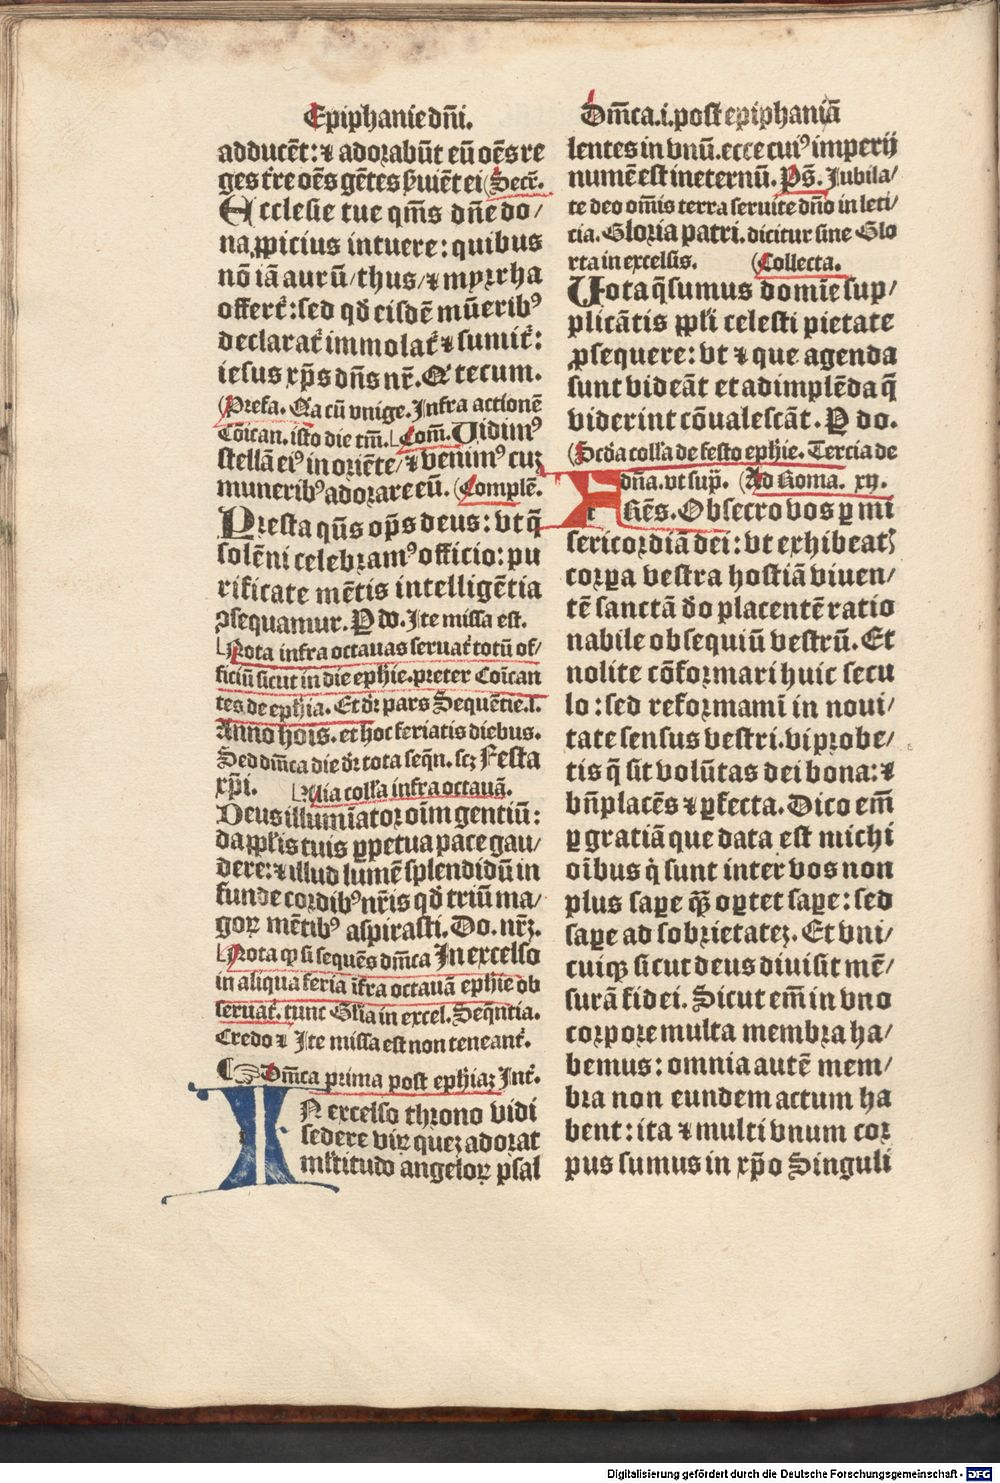 Epiphanie dn̄i.
adducēt: ⁊ adorabūt eū oēs re
ges tr̄e oēs gētes ẜuiēt ei (Secr̄.
Ecclesie tue qm̄s dn̄e do/
na ꝓpicius intuere: quibus
nō iā aurū/thus/⁊ myrrha
offert̄: sed qđ eisdē mūeribꝰ
declarat̄ immolat̄ ⁊ sumit̄:
iesus xp̄s dn̄s nr̄. Qͥ tecum.
(Prefa. Qͥa cū vnige. Infra actionē
Cōican. isto die tm̄. Com̄. Uidimꝰ
stellā eiꝰ in oriēte/⁊ venimꝰ cuꝫ
muneribꝰ adorare eū. (Complē.
Presta qs̄ op̄s deus: vt q̄
solēni celebramꝰ officio: pu
rificate mētis intelligētia
ꝯsequamur. P do. Ite missa est.
Nota infra octauas seruat̄ totū of/
ficiū sicut in die eph̄ie. preter Cōican
tes de eph̄ia. Et dr̄ pars Sequētie. I.
Anno hoīs. et hoc feriatis diebus.
Sed dn̄ica die dr̄ tota seqn̄. scꝫ Festa
xp̄i. Alia coll̄a infra octauā.
Deus illumīator oīm gentiū:
da ppl̄is tuis ꝑpetua pace gau/
dere: ⁊ illud lumē splendidū in
funde cordibꝰ nr̄is qđ triū ma/
goꝝ mētibꝰ aspirasti. Do. nr̄ꝫ.
Nota ꝙ si sequēs dn̄ica In excelso
in aliqua feria īfra octauā eph̄ie ob
seruat̄. tunc Gl̄ia in excel. Seqn̄tia.
Credo ⁊ Ite missa est non teneant̄.
Dn̄ica prima post eph̄iaꝫ Int̄.
IN excelso throno vidi
sedere viꝝ queꝫ adorat
ml̄titudo angeloꝝ psal
Dn̄ica. i. post epiphaniā
lentes in vnū. ecce cuiꝰ imperij
numē est in eternū. Ps̄. Iubila/
te deo om̄is terra seruite dn̄o in leti/
cia. Gloria patri. dicitur sine Glo
ria in excelsis. (Collecta.
Uota q̄sumus domīe sup/
plicātis ppl̄i celesti pietate
ꝓsequere: vt ⁊ que agenda
sunt videāt et ad implēda q̄
viderint cōualescāt. P do.
(Scđa coll̄a de festo eph̄ie. Tercia de
dn̄a. vt sup̄. (Ad Roma. xij.
FRēs. Obsecro vos ꝑ mi
sericordiā dei: vt exhibeatꝭ
corꝑa vestra hostiā viuen/
tē sanctā đo placentē ratio
nabile obsequiū vestrū. Et
nolite cōformari huic secu
lo: sed reformamī in noui/
tate sensus vestri. vt probe/
tis q̄ sit volūtas dei bona: ⁊
bn̄placēs ⁊ ꝑfecta. Dico em̄
ꝑ gratiā que data est michi
oībus q̇ sunt inter vos non
plus saꝑe qȝ̄ oꝑtet saꝑe: sed
saꝑe ad sobrietateꝫ. Et vni/
cuiqꝫ sicut deus diuisit mē/
surā fidei. Sicut em̄ in vno
corpore multa membra ha/
bemus: omnia autē mem/
bra non eundem actum ha
bent: ita ⁊ multi vnum cor
pus sumus in xp̄o Singuli
Digitalisierung gefördert durch die Deutsche Forschungsgemeinschaft - DFG